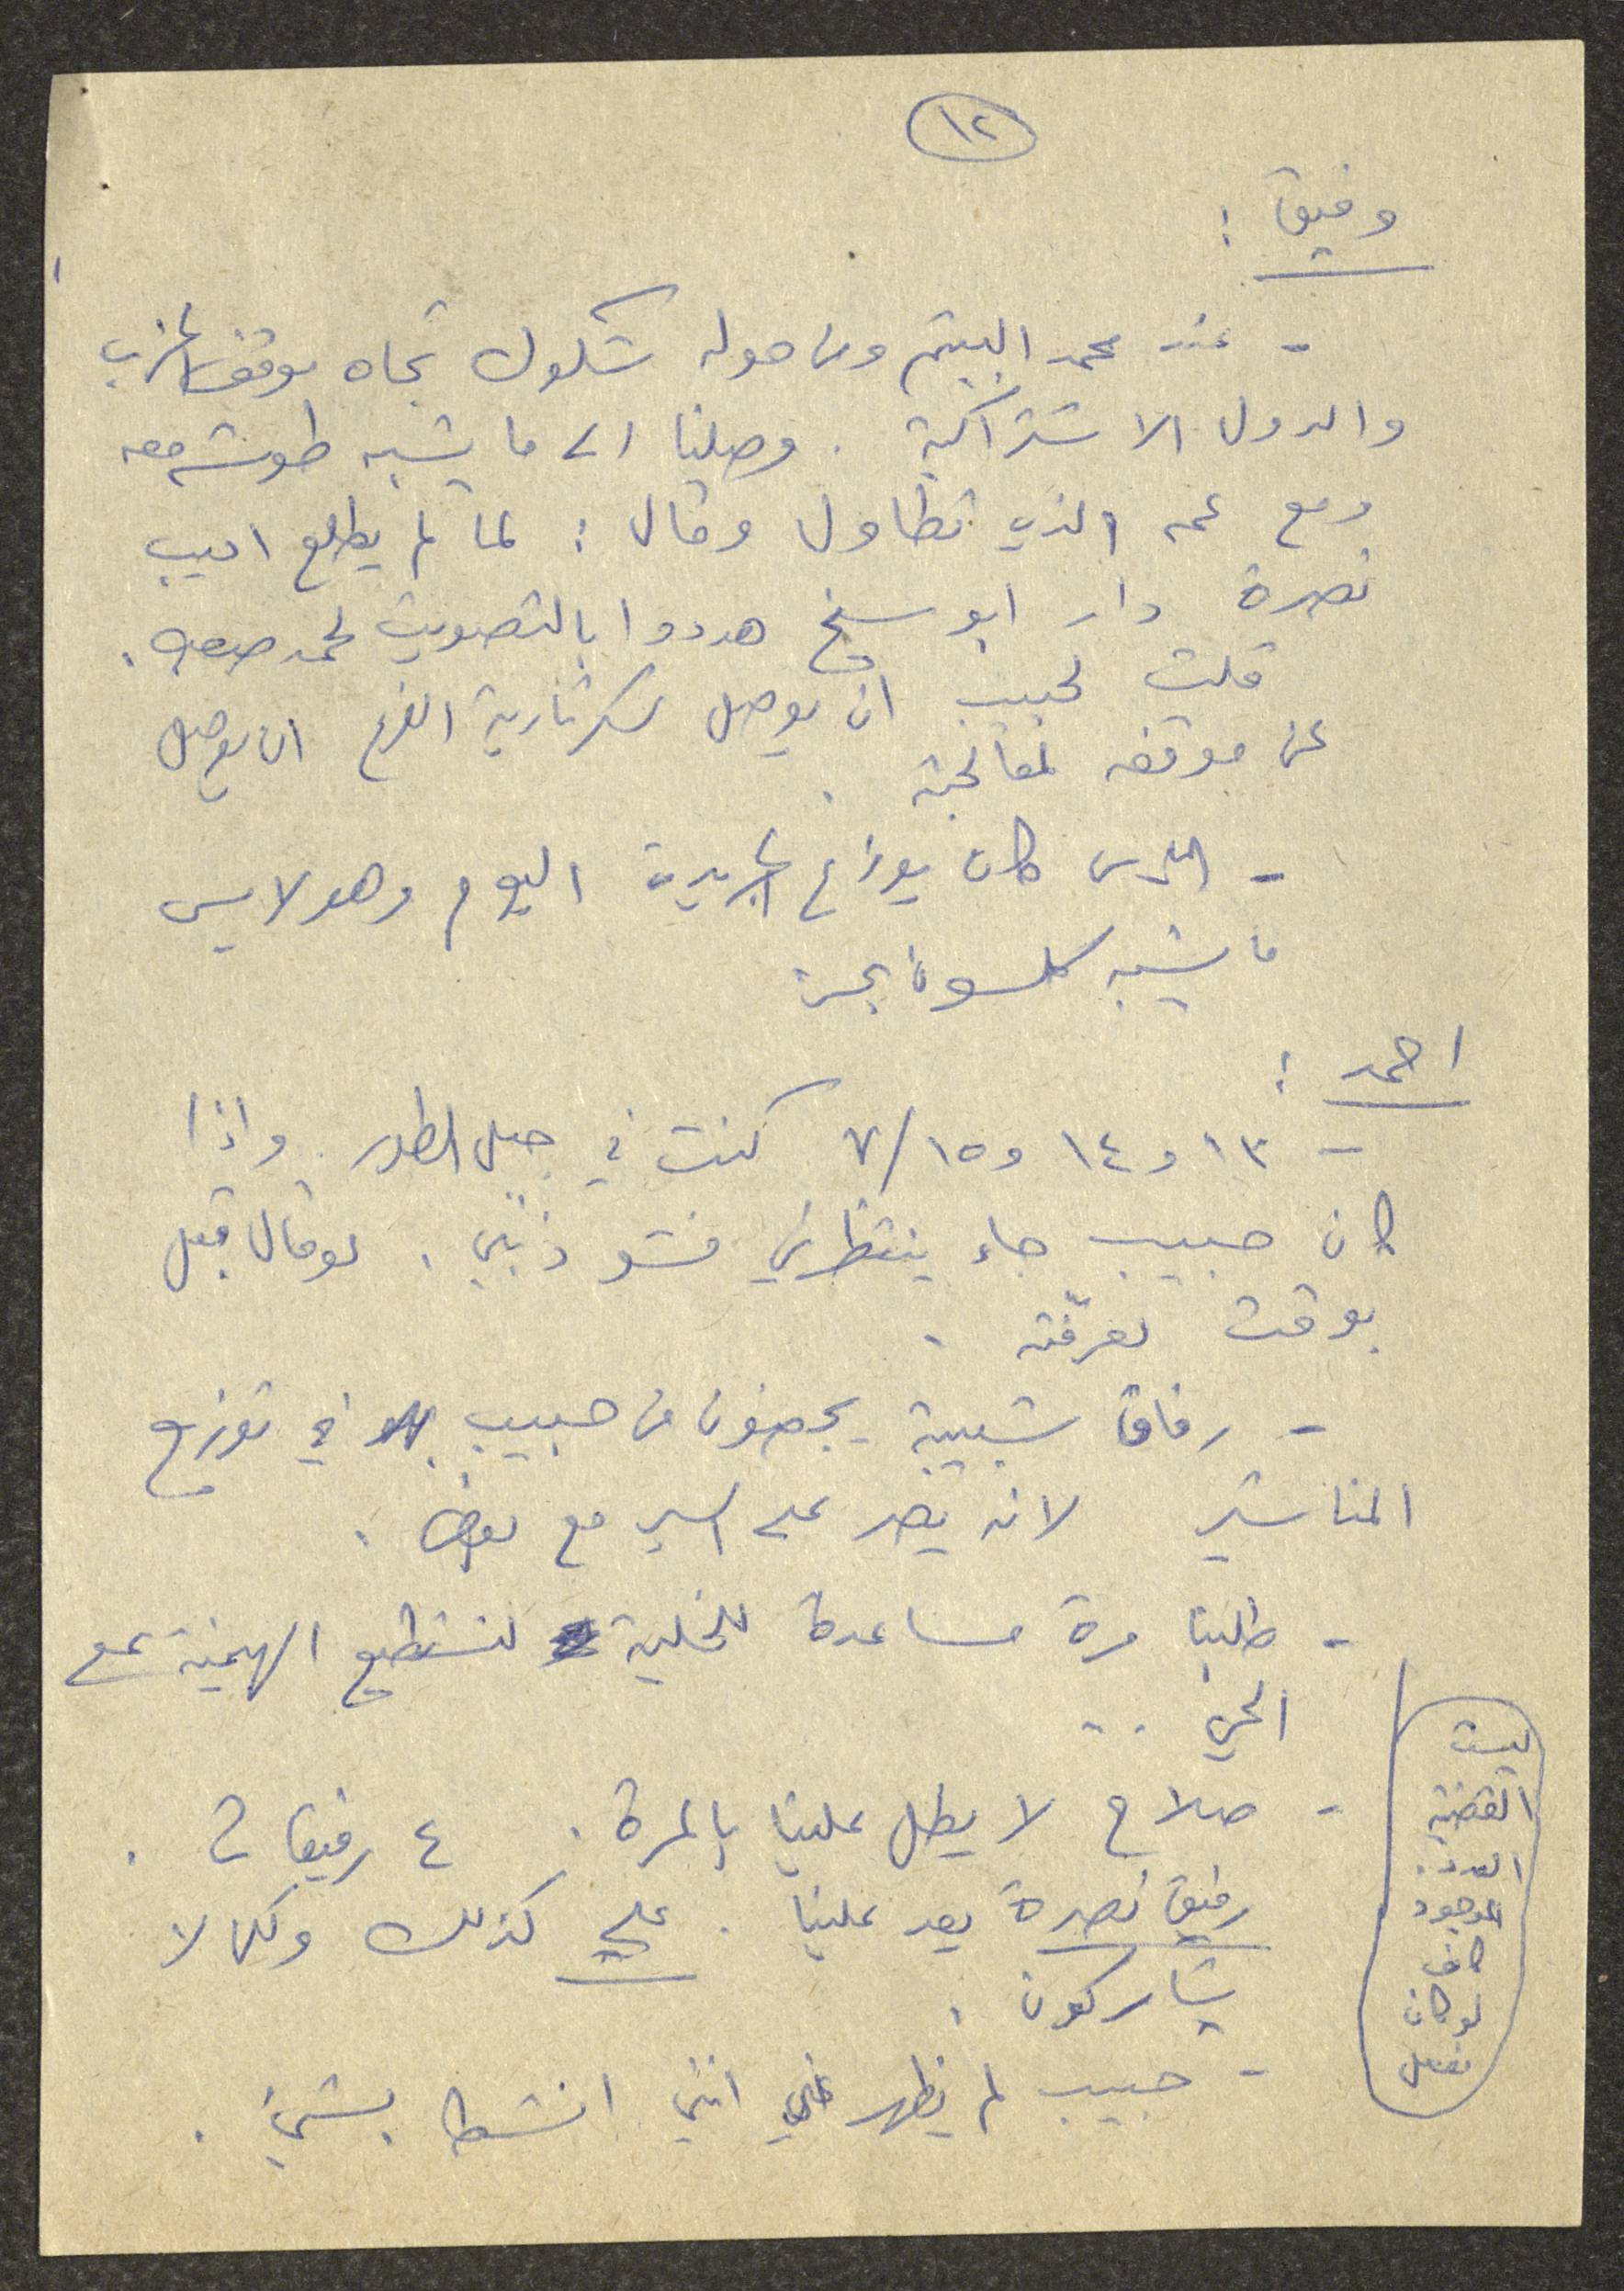 ١٢
وفيق :
- عند محمد اليتيم ومن حوله شكوك تجاه موقف الحزب
والدول الاشتراكية . وصلنا الى ما يشبه طوشه معه
ومع عمه الذي تطاول وقال : لما لم يطلع اديب
نصرة دار ابو سيخ هددوا بالتصويت لمحمد
قلت لحبيب ان يوصل لسكرتارية الفرع ان يوصل
عن موقفه لمعالجته .
- كان يوزع الجريدة اليوم وهو لابس
ما يشبه كلسون بحر
احمد :
- ١٣ و ١٤ و ١٥/٧ كنت في جبل الطور . واذا
كان حبيب جاء ينتظرني فشو ذنبي . لو قال قبل
بوقت لعرّفته .
- رفاق شبيبة من حبيب في توزيع
المناشير لانه يصر على السير مع بعض .
- طلبنا مرة مساعدة للخلية لنستطيع الهيمنة على
الحي ..
- صلاح لا يطل علينا بالمرة . ٤ رفيقات .
رفيق نصرة يعد علينا . علي كذلك وكمال لا
يشاركون .
- حبيب لم يظهر انني انشط بشيء .
ليست
القضية
العدد .
الموجود
كاف
لو كان
نعمل